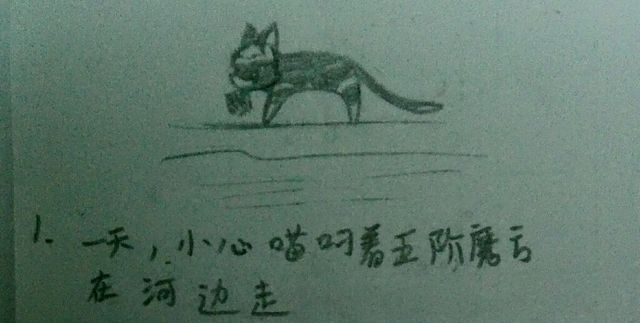 1. 一天，小心喵叼着五阶魔方
在河边走